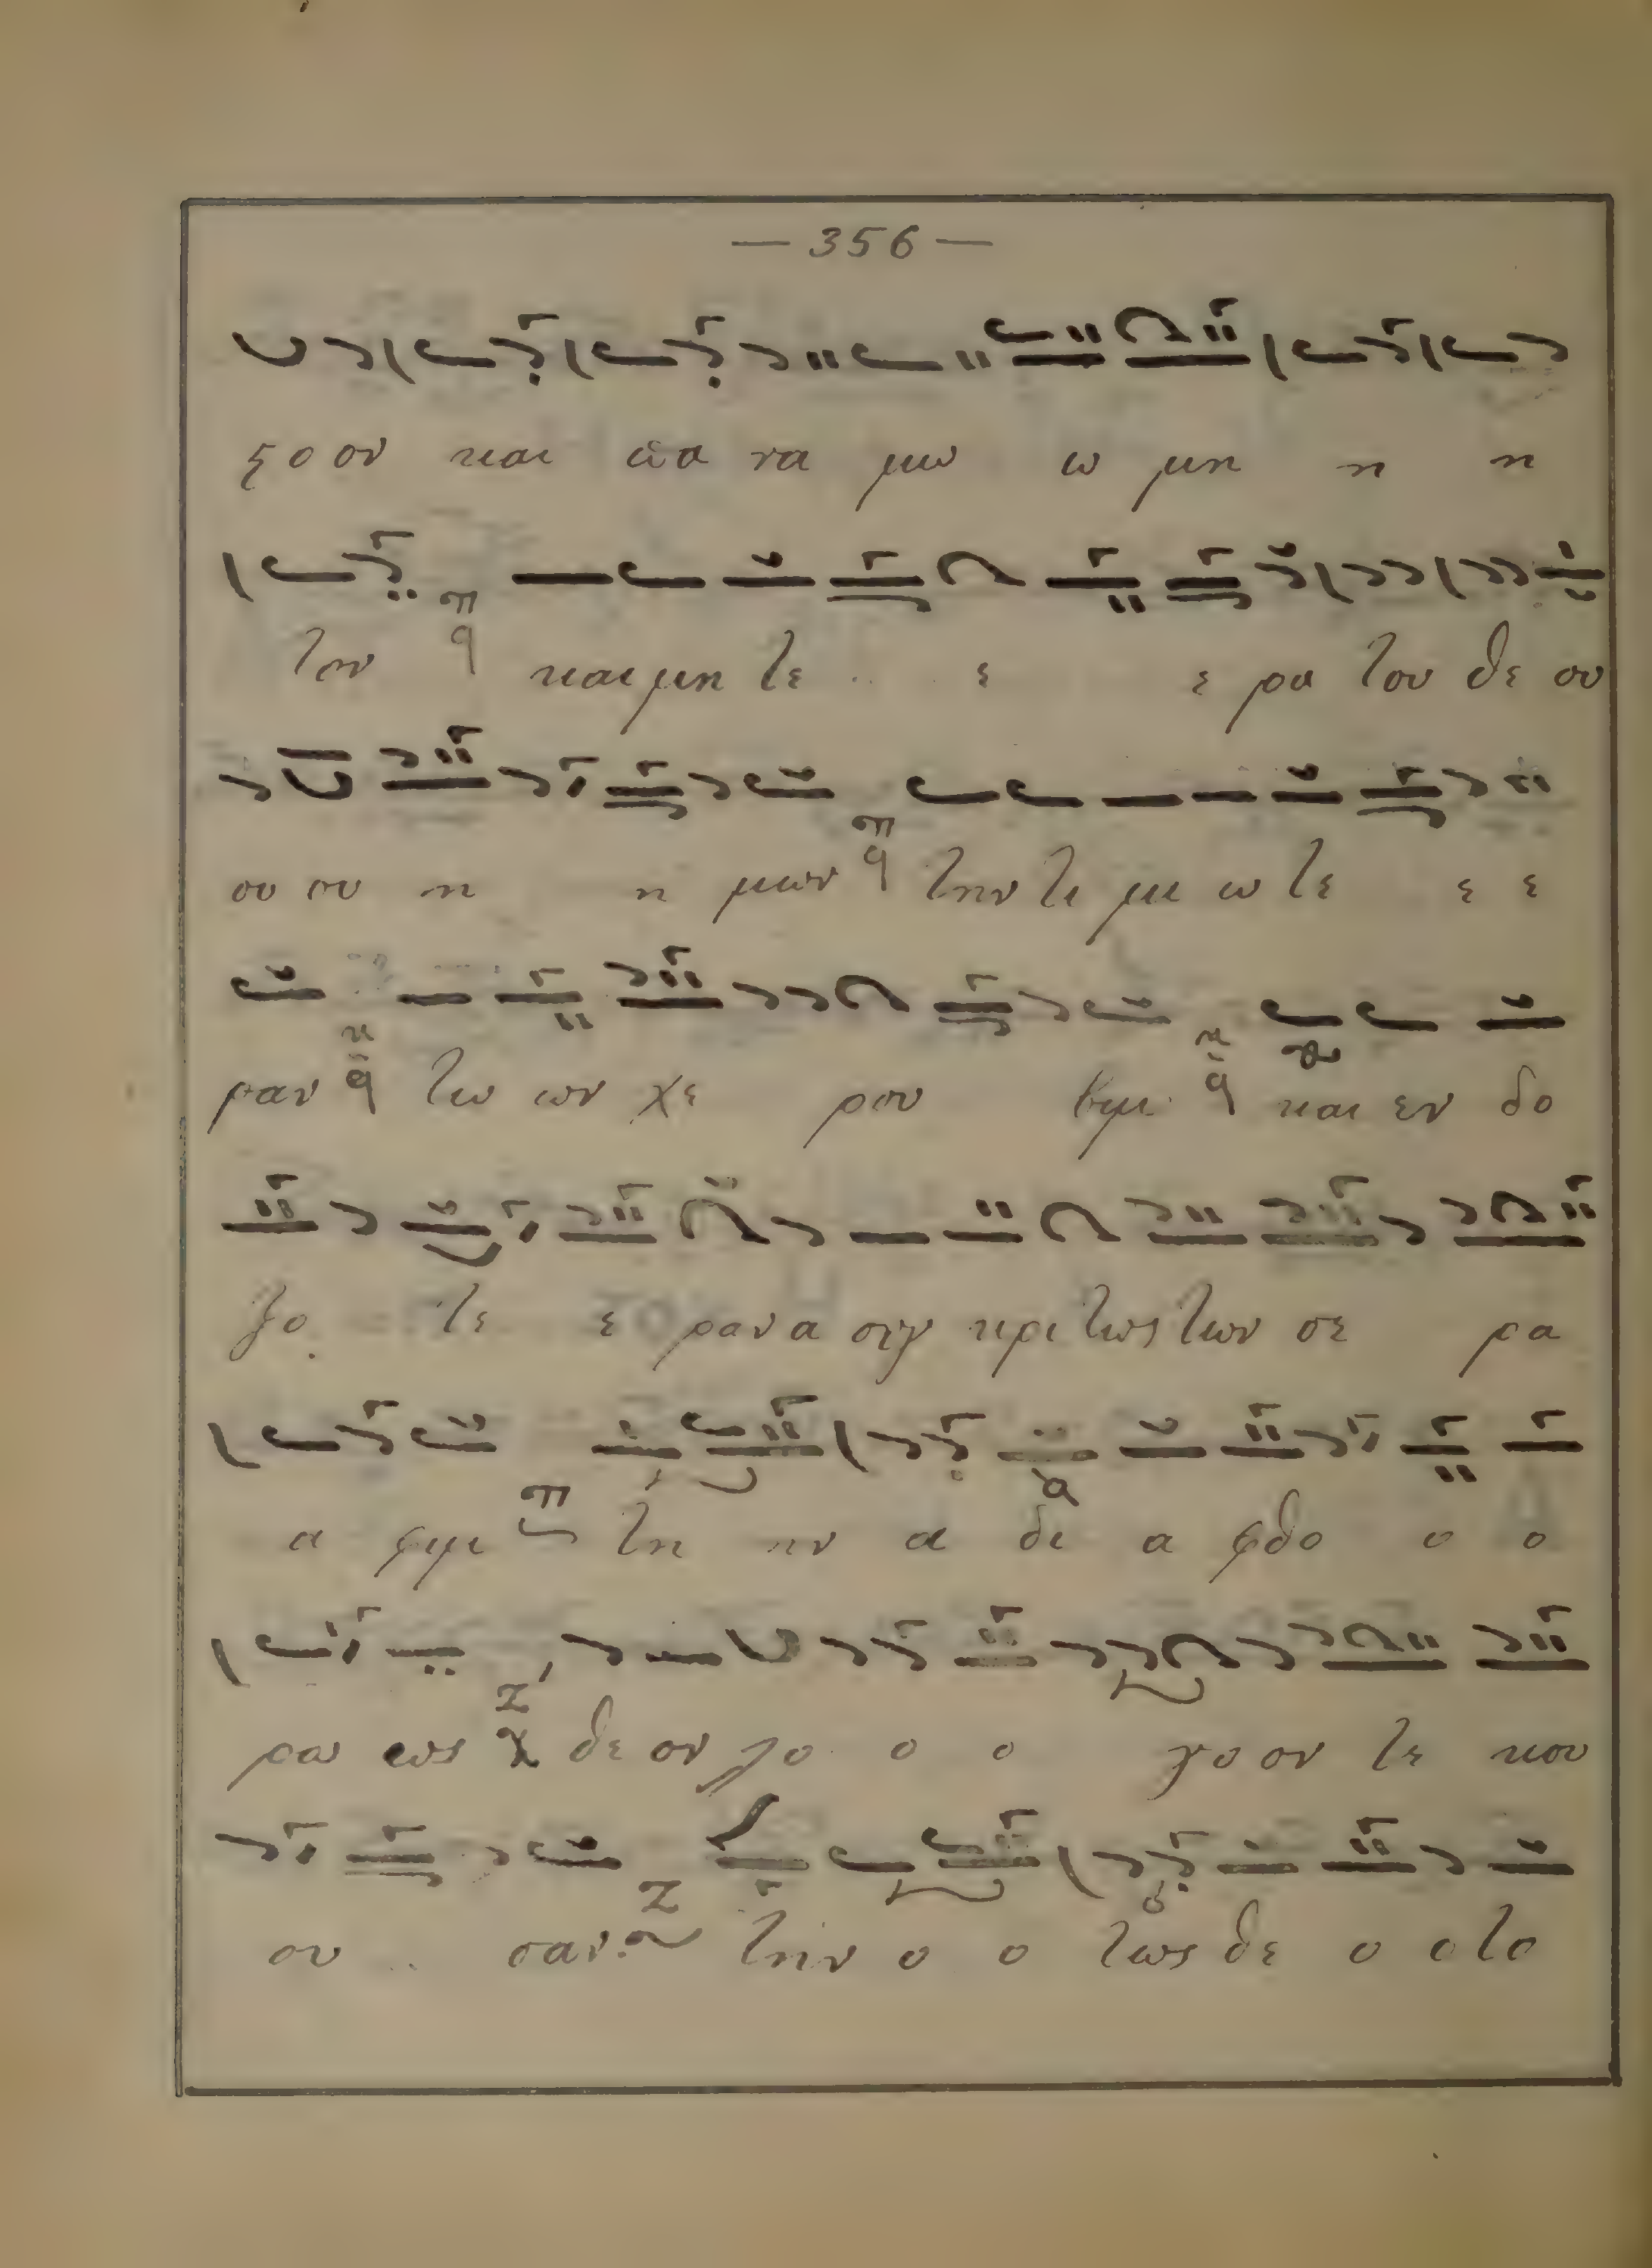 — 356 —
ξο ον και πα α να μω ω μη η η
τον π q και μη τε ε ε ρα του θε ου
ου ου η η μων π q την τι μι ω τε ε ε
ραν κ q τω ων χε ρου βιμ κ q και εν δο
ξο τε ε ραν α συγ κρι τως των σε ρα
α φιμ π τη ην α δι α φθο ο ο
ρω ως Z θε ον λο ο ο γο ον τε κου
ου σαν Z την ο ο τως θε ο ο το